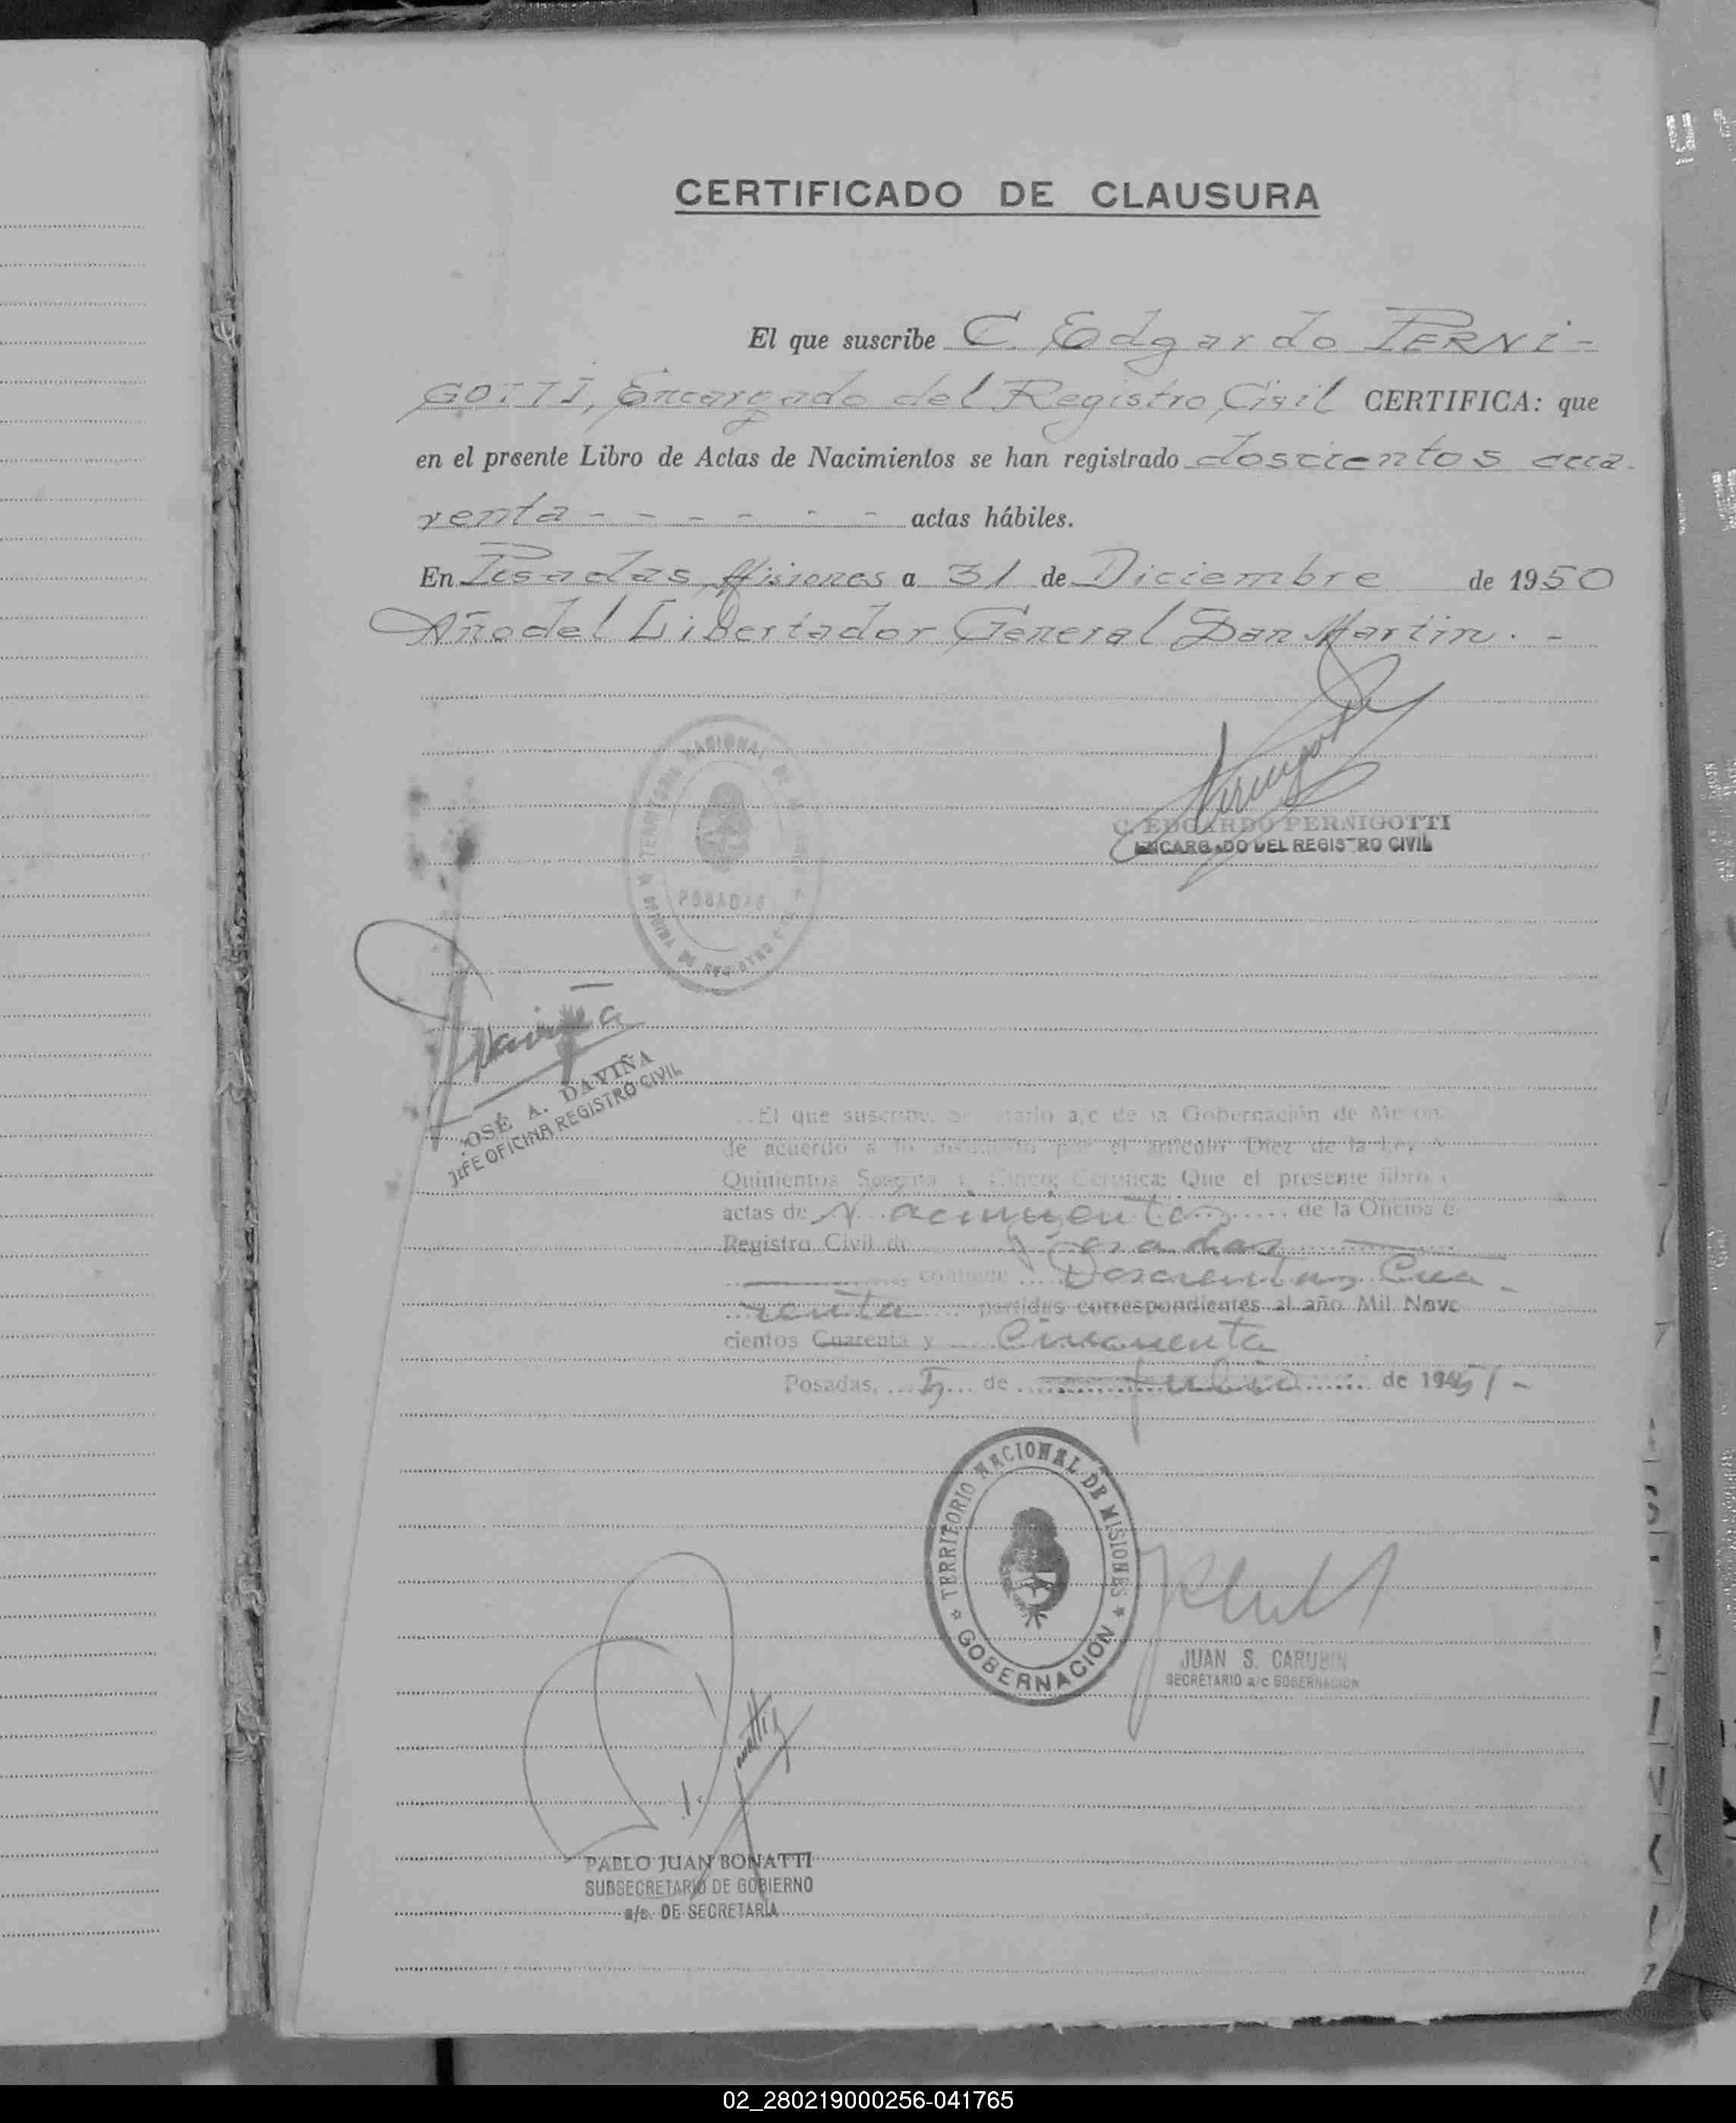 CERTIFICADO DE CLAUSURA
El que suscribe C. Edgardo PERNI-
GOTTI, Encargado del Registro Civil CERTIFICA: que
en el presente Libro de Actas de Nacimientos se han registrado doscientos cua-
renta - - - - - - actas hábiles.
En Posadas Misiones a 31 de Diciembre de 1950
Año del Libertador General San Martin. -
TERRITORIO NACIONAL DE
POSADAS
C. EDGARDO PERNIGOTTI
ENCARGADO DEL REGISTRO CIVIL
Daviña
JOSÉ A. DAVIÑA
JEFE OFICINA REGISTRO CIVIL
El que suscribe, Secretario a/c de la Gobernación de
de acuerdo a lo por el artículo Diez de la Ley
Quinientos Sesenta y Cinco; Certifica: Que el presente libro
actas de Nacimientos de la Oficina
Registro Civil de Posadas
contiene Doscientas Cua-
renta partidas correspondientes al año Mil Nove
cientos Cuarenta y Cincuenta
Posadas, 5 de Julio de 1951 -
TERRITORIO NACIONAL DE MISIONES
GOBERNACIÓN
JUAN S. CARUBIN
SECRETARIO a/c GOBERNACION
PABLO JUAN BONATTI
SUBSECRETARIO DE GOBIERNO
a/c. DE SECRETARÍA
02_280219000256-041765